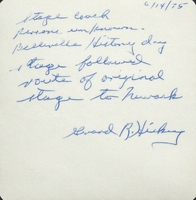 6/14/75
Stage Coach
Persons unknown.
Belleville History day
Stage followed
route of original
stage to Newark
Gerard R. Hickey